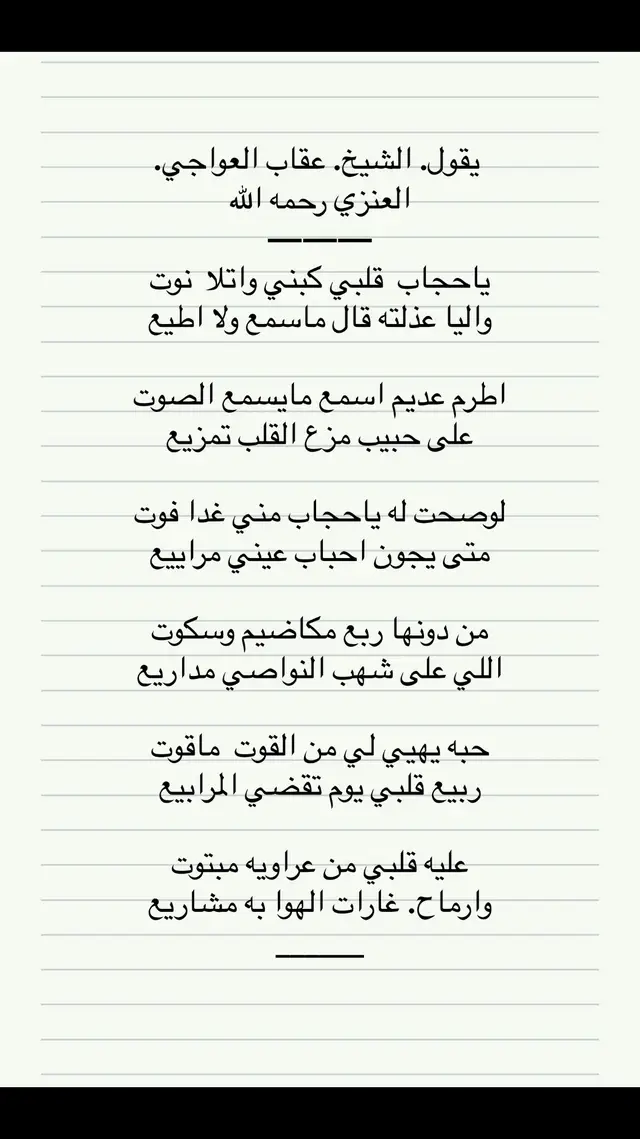 يقول. الشيخ. عقاب العواجي.
العنزي رحمه الله
ياحجاب قلبي كبني واتلا نوت
واليا عذلته قال ماسمع ولا اطيع
اطرم عديم اسمع مايسمع الصوت
على حبيب مزع القلب تمزيع
لوصحت له ياحجاب مني غدا فوت
متى يجون احباب عيني مرابيع
من دونها ربع مكاضيم وسكوت
اللي على شهب النواصي مداريع
حبه يهيي لي من القوت ماقوت
ربيع قلبي يوم تقضي المرابيع
عليه قلبي من عراويه مبتوت
وارماح. غارات الهوا به مشاريع